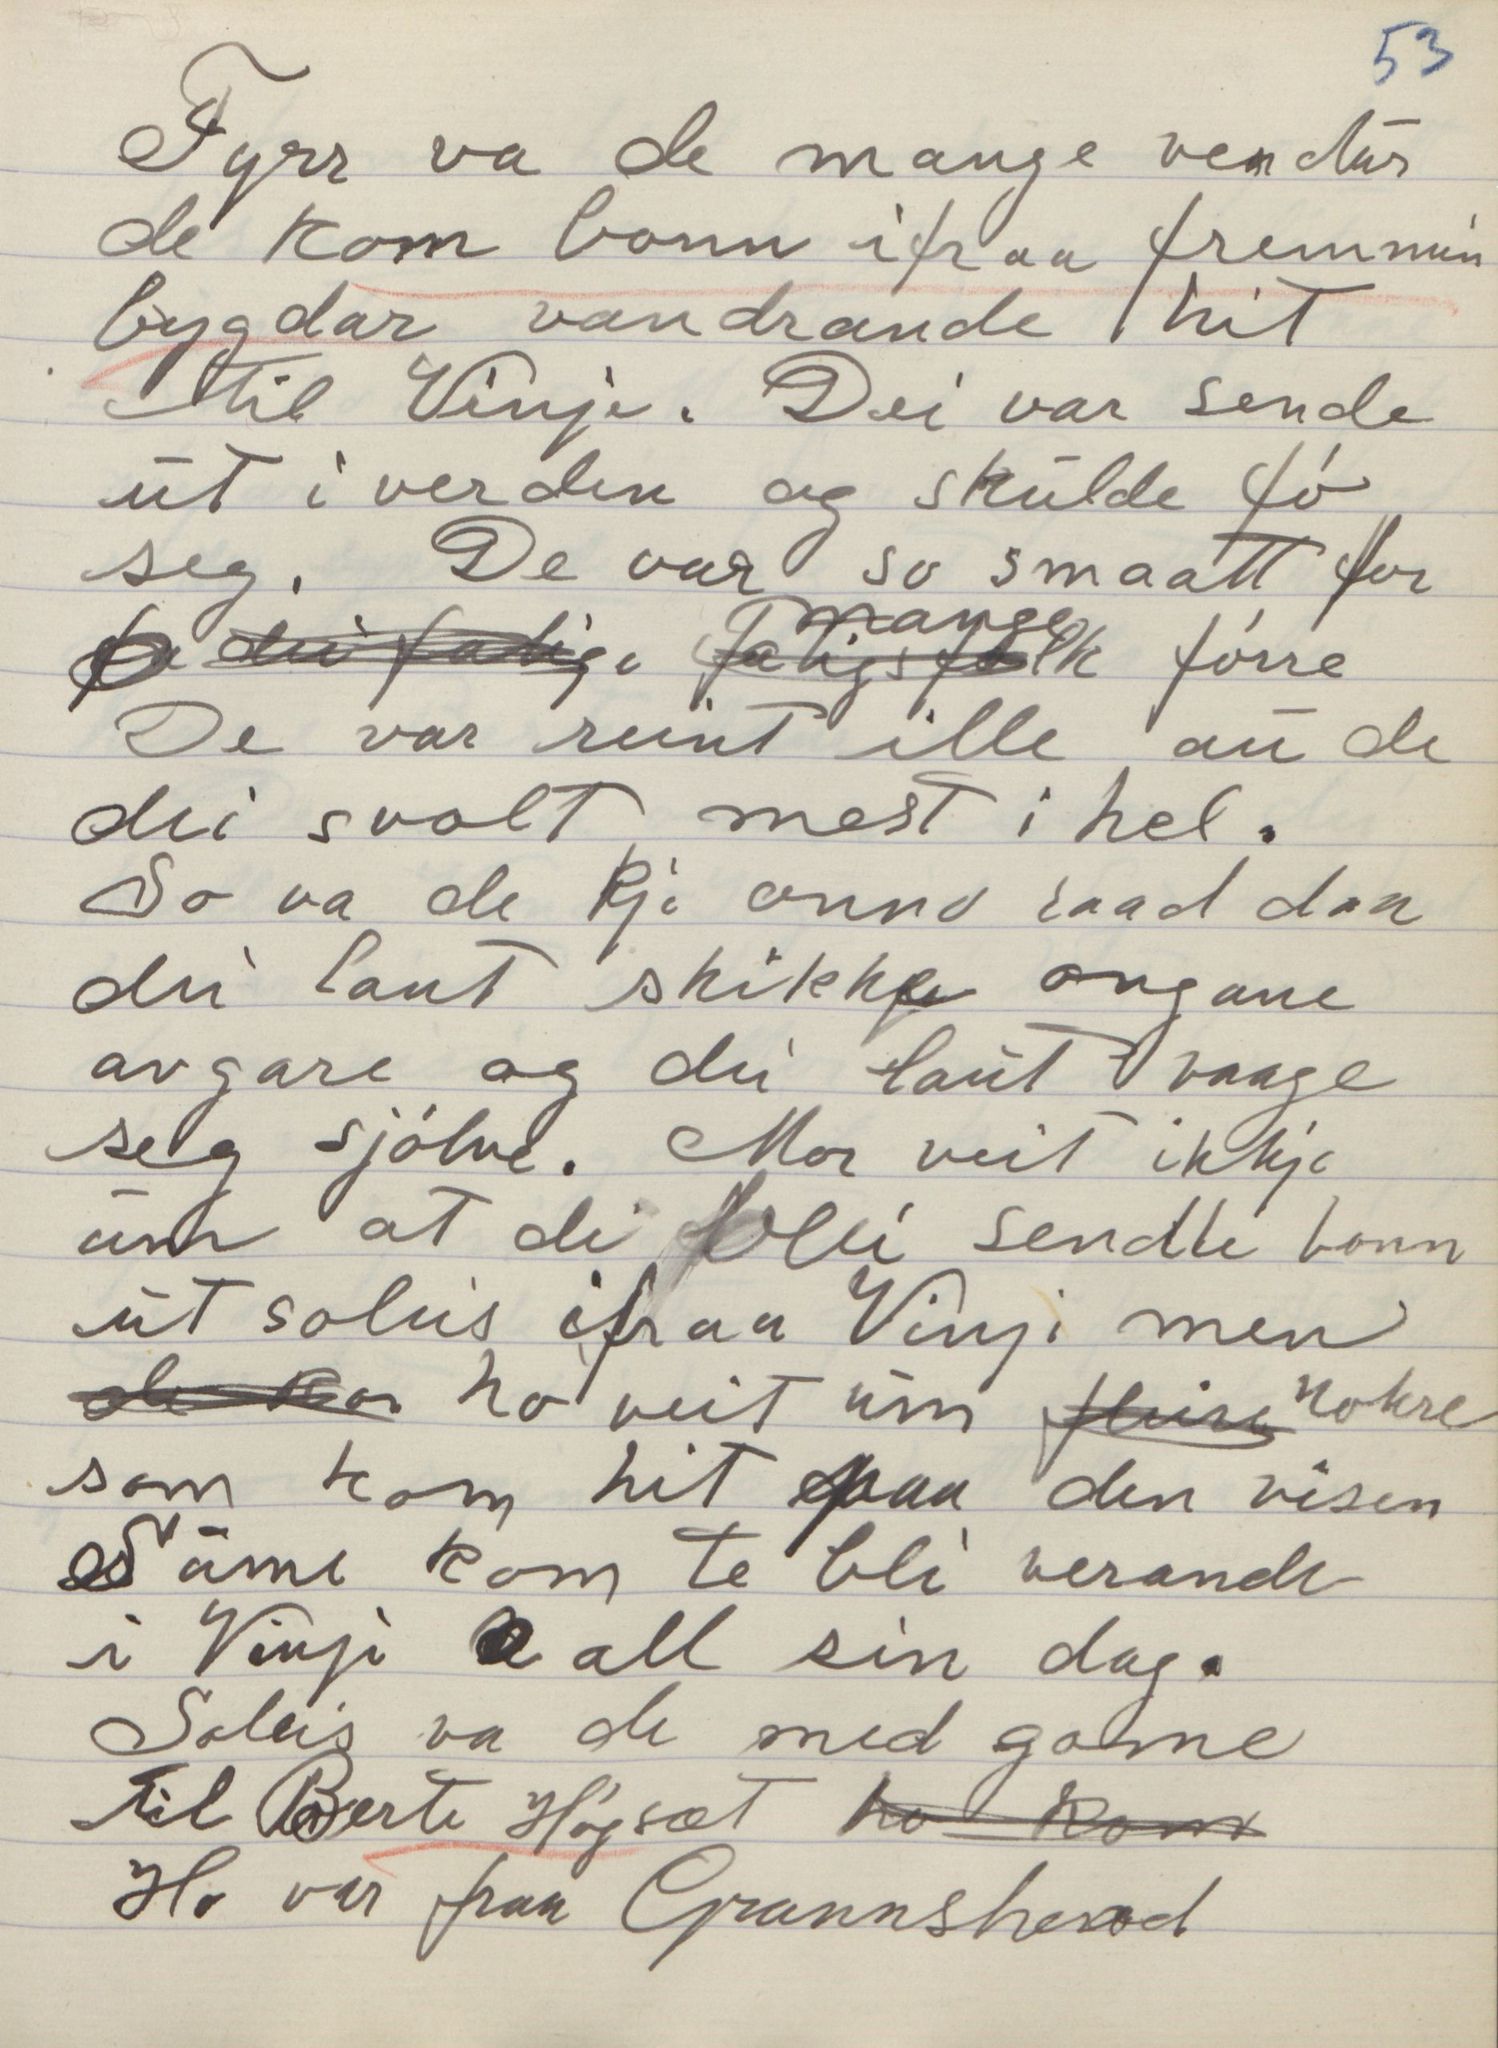 53
Fyrr va de mange vendur
de kom bonn ifraa fremmin
bygdar vandrande hit
til Vinje. Dei var sende
út i verden og skulde fó
seg. De var so smaatt for
mange
fe dei fatige fatigsfolk fórre
De var reint ille au de
dei svolt mest i hel.
So va de kje onno raad daa
dei laut skikke ongane
avgare og dei laut vaage
seg sjólve. Mor veit ikkje
um at de blei sendte bonn
ut soleis ifraa Vinje men
de kom ho veit um fleire nokre
som kom hit paa den visen
Sume kom te bli verande
i Vinje all sin dag.
Soleis va de med gome
til Berte Högsæt ho kom
Ho var fraa Grannsherad